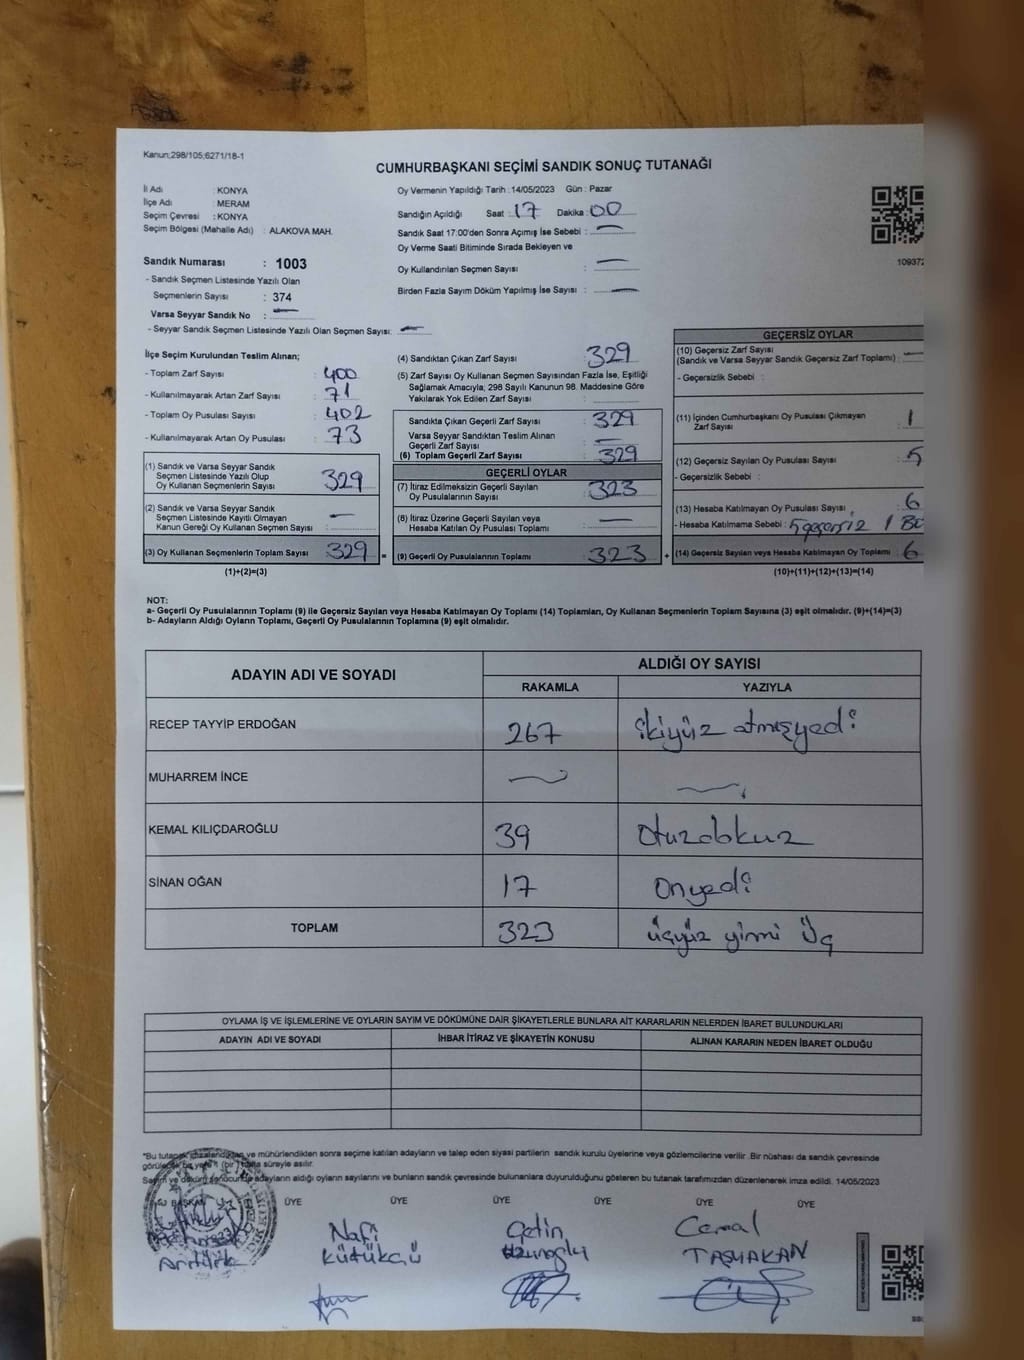 Kanun;298/105;6271/18-1
CUMHURBAŞKANI SEÇİMİ SANDIK SONUÇ TUTANAĞI
İl Adı : KONYA
İlçe Adı : MERAM
Seçim Çevresi : KONYA
Seçim Bölgesi (Mahalle Adı) : ALAKOVA MAH.
Oy Vermenin Yapıldığı Tarih :14/05/2023 Gün : Pazar
Sandığın Açıldığı Saat : 17 Dakika : 00
Sandık Saat 17:00'den Sonra Açımış İse Sebebi : —
Oy Verme Saati Bitiminde Sırada Bekleyen ve
Oy Kullandırılan Seçmen Sayısı : —
Birden Fazla Sayım Döküm Yapılmış İse Sayısı : —
109372
Sandık Numarası : 1003
- Sandık Seçmen Listesinde Yazılı Olan
Seçmenlerin Sayısı : 374
Varsa Seyyar Sandık No : —
- Seyyar Sandık Seçmen Listesinde Yazılı Olan Seçmen Sayısı: —
İlçe Seçim Kurulundan Teslim Alınan;
- Toplam Zarf Sayısı : 400
- Kullanılmayarak Artan Zarf Sayısı : 71
- Toplam Oy Pusulası Sayısı : 402
- Kullanılmayarak Artan Oy Pusulası : 73
(1) Sandık ve Varsa Seyyar Sandık
Seçmen Listesinde Yazılı Olup
Oy Kullanan Seçmenlerin Sayısı : 329
(2) Sandık ve Varsa Seyyar Sandık
Seçmen Listesinde Kayıtlı Olmayan
Kanun Gereği Oy Kullanan Seçmen Sayısı : —
(3) Oy Kullanan Seçmenlerin Toplam Sayısı : 329 =
(1)+(2)=(3)
(4) Sandıktan Çıkan Zarf Sayısı : 329
(5) Zarf Sayısı Oy Kullanan Seçmen Sayısından Fazla İse, Eşitliği
Sağlamak Amacıyla; 298 Sayılı Kanunun 98. Maddesine Göre
Yakılarak Yok Edilen Zarf Sayısı :
Sandıkta Çıkan Geçerli Zarf Sayısı : 329
Varsa Seyyar Sandıktan Teslim Alınan
Geçerli Zarf Sayısı : —
(6) Toplam Geçerli Zarf Sayısı : 329
GEÇERLİ OYLAR
(7) İtiraz Edilmeksizin Geçerli Sayılan
Oy Pusulalarının Sayısı : 323
(8) İtiraz Üzerine Geçerli Sayılan veya
Hesaba Katılan Oy Pusulası Toplamı : —
(9) Geçerli Oy Pusulalarının Toplamı : 323 +
GEÇERSİZ OYLAR
(10) Geçersiz Zarf Sayısı
(Sandık ve Varsa Seyyar Sandık Geçersiz Zarf Toplamı) : —
- Geçersizlik Sebebi :
(11) İçinden Cumhurbaşkanı Oy Pusulası Çıkmayan
Zarf Sayısı : 1
(12) Geçersiz Sayılan Oy Pusulası Sayısı : 5
- Geçersizlik Sebebi :
(13) Hesaba Katılmayan Oy Pusulası Sayısı : 6
- Hesaba Katılmama Sebebi : 5 geçersiz 1
(14) Geçersiz Sayılan veya Hesaba Katılmayan Oy Toplamı : 6
(10)+(11)+(12)+(13)=(14)
NOT:
a- Geçerli Oy Pusulalarının Toplamı (9) ile Geçersiz Sayılan veya Hesaba Katılmayan Oy Toplamı (14) Toplamları, Oy Kullanan Seçmenlerin Toplam Sayısına (3) eşit olmalıdır. (9)+(14)=(3)
b- Adayların Aldığı Oyların Toplamı, Geçerli Oy Pusulalarının Toplamına (9) eşit olmalıdır.
ADAYIN ADI VE SOYADI ALDIĞI OY SAYISI
RAKAMLA YAZIYLA
RECEP TAYYİP ERDOĞAN 267 ikiyüz atmışyedi
MUHARREM İNCE — —
KEMAL KILIÇDAROĞLU 39 Otuzdokuz
SİNAN OĞAN 17 Onyedi
TOPLAM 323 üçyüz yirmi üç
OYLAMA İŞ VE İŞLEMLERİNE VE OYLARIN SAYIM VE DÖKÜMÜNE DAİR ŞİKAYETLERLE BUNLARA AİT KARARLARIN NELERDEN İBARET BULUNDUKLARI
ADAYIN ADI VE SOYADI İHBAR İTİRAZ VE ŞİKAYETİN KONUSU ALINAN KARARIN NEDEN İBARET OLDUĞU
"Bu tutanak ve mühürlendikten sonra seçime katılan adayların ve talep eden siyasi partilerin sandık kurulu üyelerine veya gözlemcilerine verilir .Bir nüshası da sandık çevresinde
görülecek bir yere 1 (bir) hafta süreyle asılır.
Sayım ve döküm sonucunda adayların aldığı oyların sayılarını ve bunların sandık çevresinde bulunanlara duyurulduğunu gösteren bu tutanak tarafımızdan düzenlenerek imza edildi. 14/05/2023
BAŞKAN ÜYE ÜYE ÜYE ÜYE ÜYE ÜYE
Nafi Çetin Cemal
KÜTÜKCÜ Uzunoğlu TAŞYAKAN